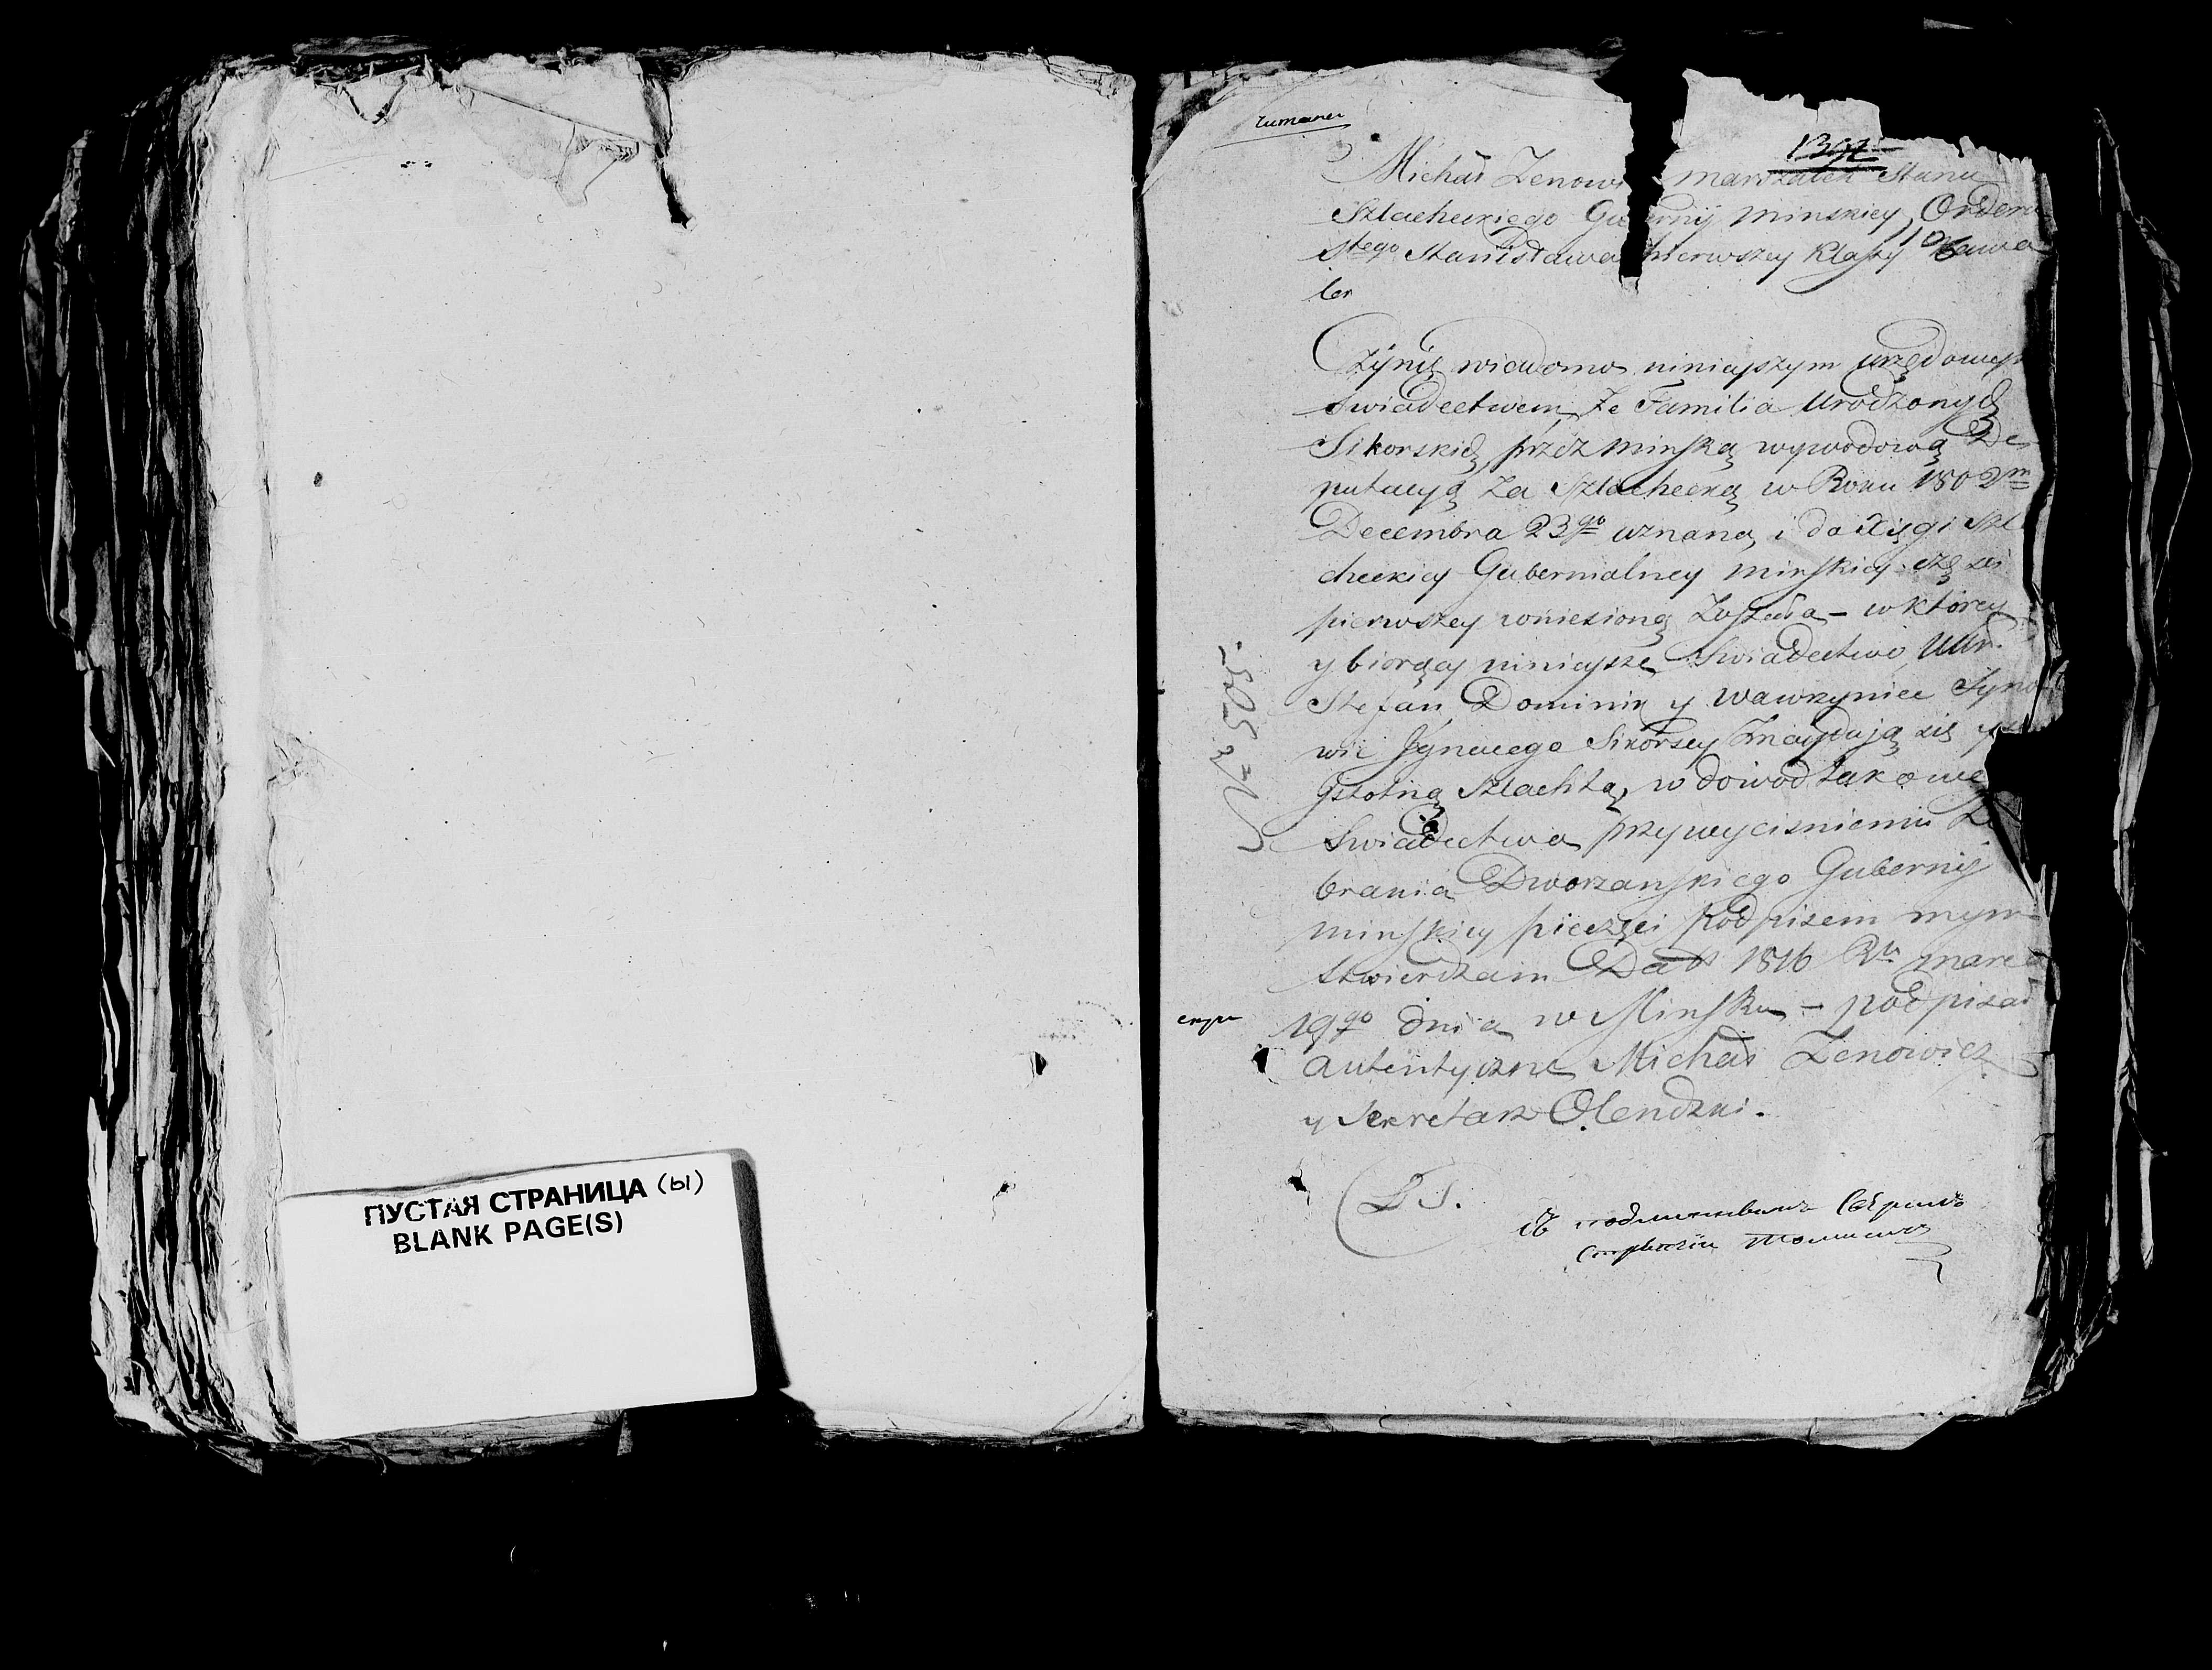 ПУСТАЯ СТРАНИЦА (ы)
BLANK PAGE(S)
1392
Michał Zenowi marszałek Stanu
Szlacheckiego Gubernij minskiey, Orderu
Stego Stanisława pierwszey Klassy Kawa
ler
Czynię wiadomo niniejszym urzędowym
swiadectwem, że Familia Urodzonych
Sikorskich, przez minską wywodową De
putacyą za Szlachecką w Roku 1802m
Decembra 23go uznaną, i do Xięgi szl
checkiey Gubernialney minskiey części
pierwszey wniesioną została – w którey
y biorący niniejsze Swiadectwo, Uur.
Stefan, Dominik y Wawrzyniec Syno
wie Jgnacego Sikorscy znaydują się y są
Jstotną Szlachtą, w dowod takowe
Swiadectwa przy wycisnieniu Ze
brania Dworzanskiego Gubernij
minskiey pieczęci podpisem mym
stwierdzam Dat 1816 Rku marca
19go dnia w Minsku – podpisał
autentyczne Michał Zenowicz
y Sekretarz Olendzki.
LS.